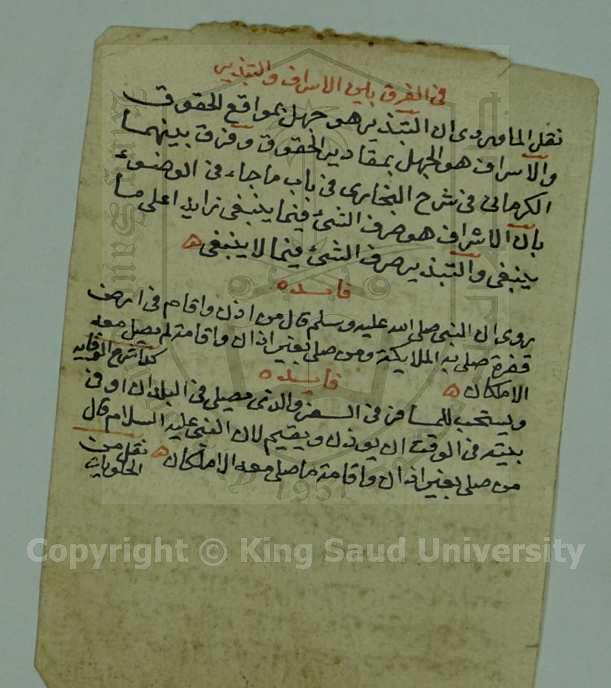 في الفرق بين الاسراف والتبذير
نقل الماوردي ان التبذير هو جهل بمواقع الحقوق
والاسراف هو الجهل بمقادير الحقوق وفرق بينهما
الكرماني في شرح البخاري في باب ما جاء في الوضوء
بان الاسراف هو صرف الشئ فيما ينبغي زايد اعلى ما
ينبغي والتبذير صرف الشئ فيما لا ينبغي ه
فايده ه
روى ان النبي صلى الله عليه وسلم قال من اذن واقام في ارض
قفرة صلى به الملايكة ومن صلى بغير اذان واقامة لم يصل معه
الا ملكان ه كذا شرح الوقايه
فايده ه
ويستحب للمسافر في السفر والذي يصلي في البلدان او في
بيته في الوقت ان يوذن ويقيم لان النبي عليه السلام قال
من صلى بغير اذان واقامة ما صلى معه الا ملكان ه نقل من
الحاويات
Copyright © King Saud University
1957